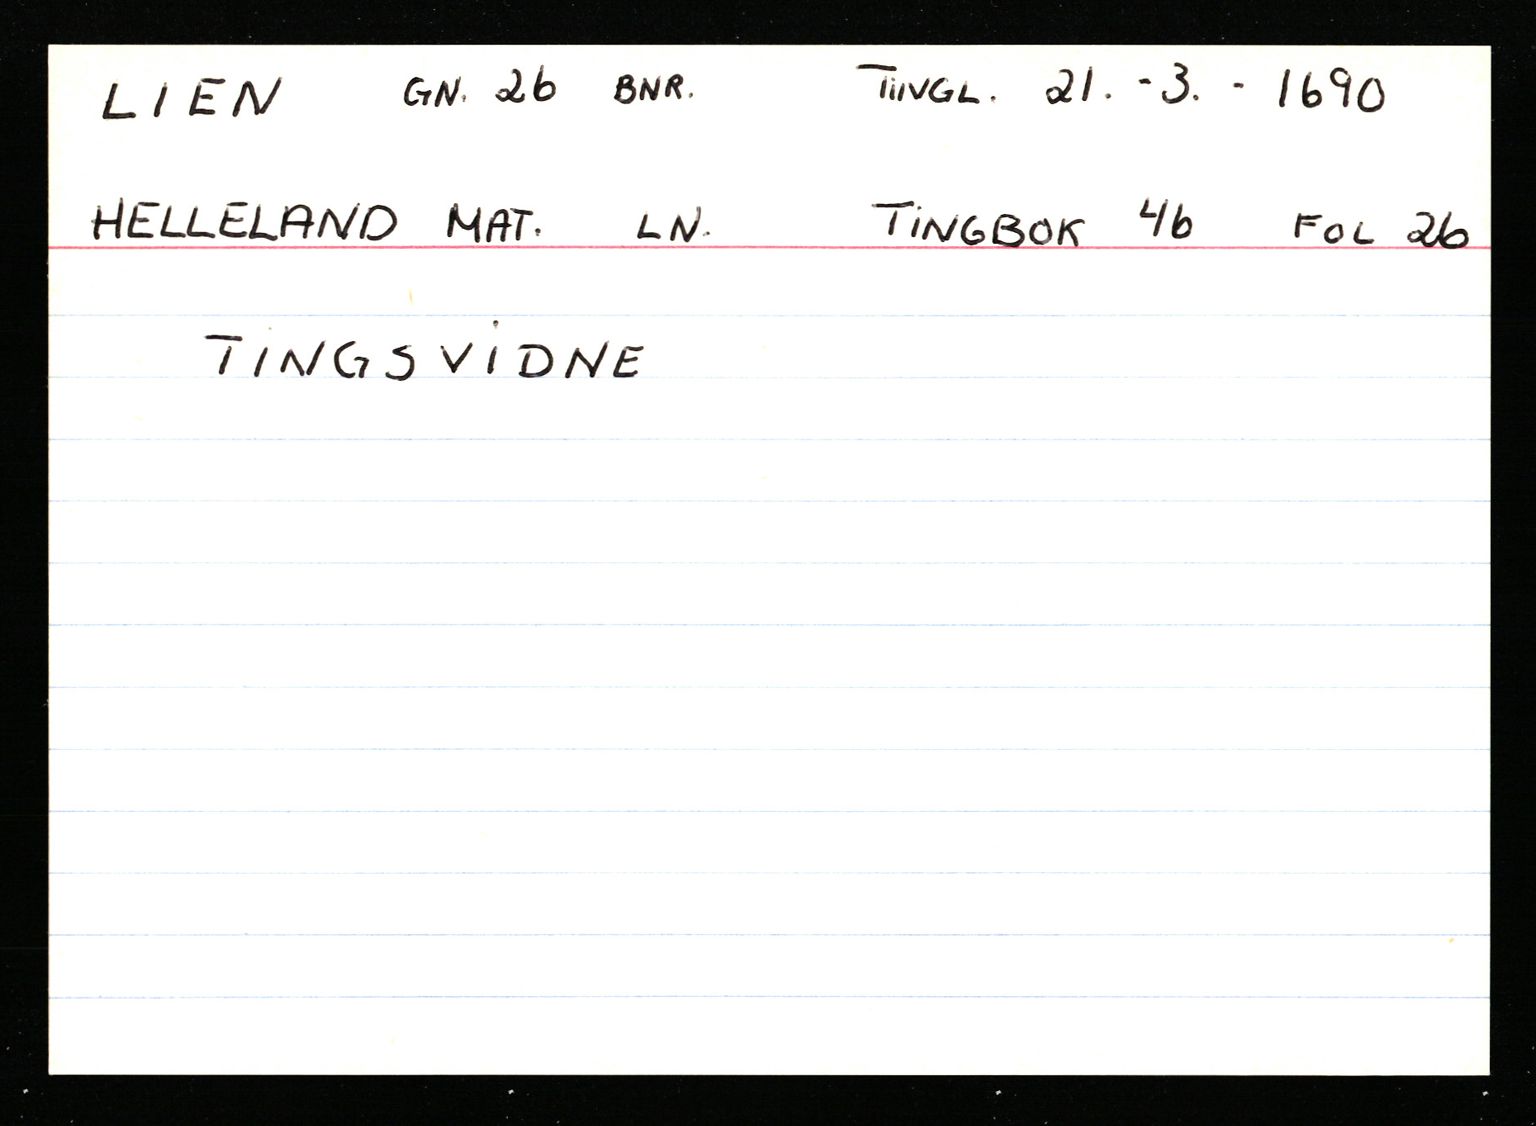 LIEN GN. 26 BNR. TINGL. 21. - 3. - 1690
HELLELAND MAT. LN. TINGBOK 46 FOL 26
TINGSVIDNE